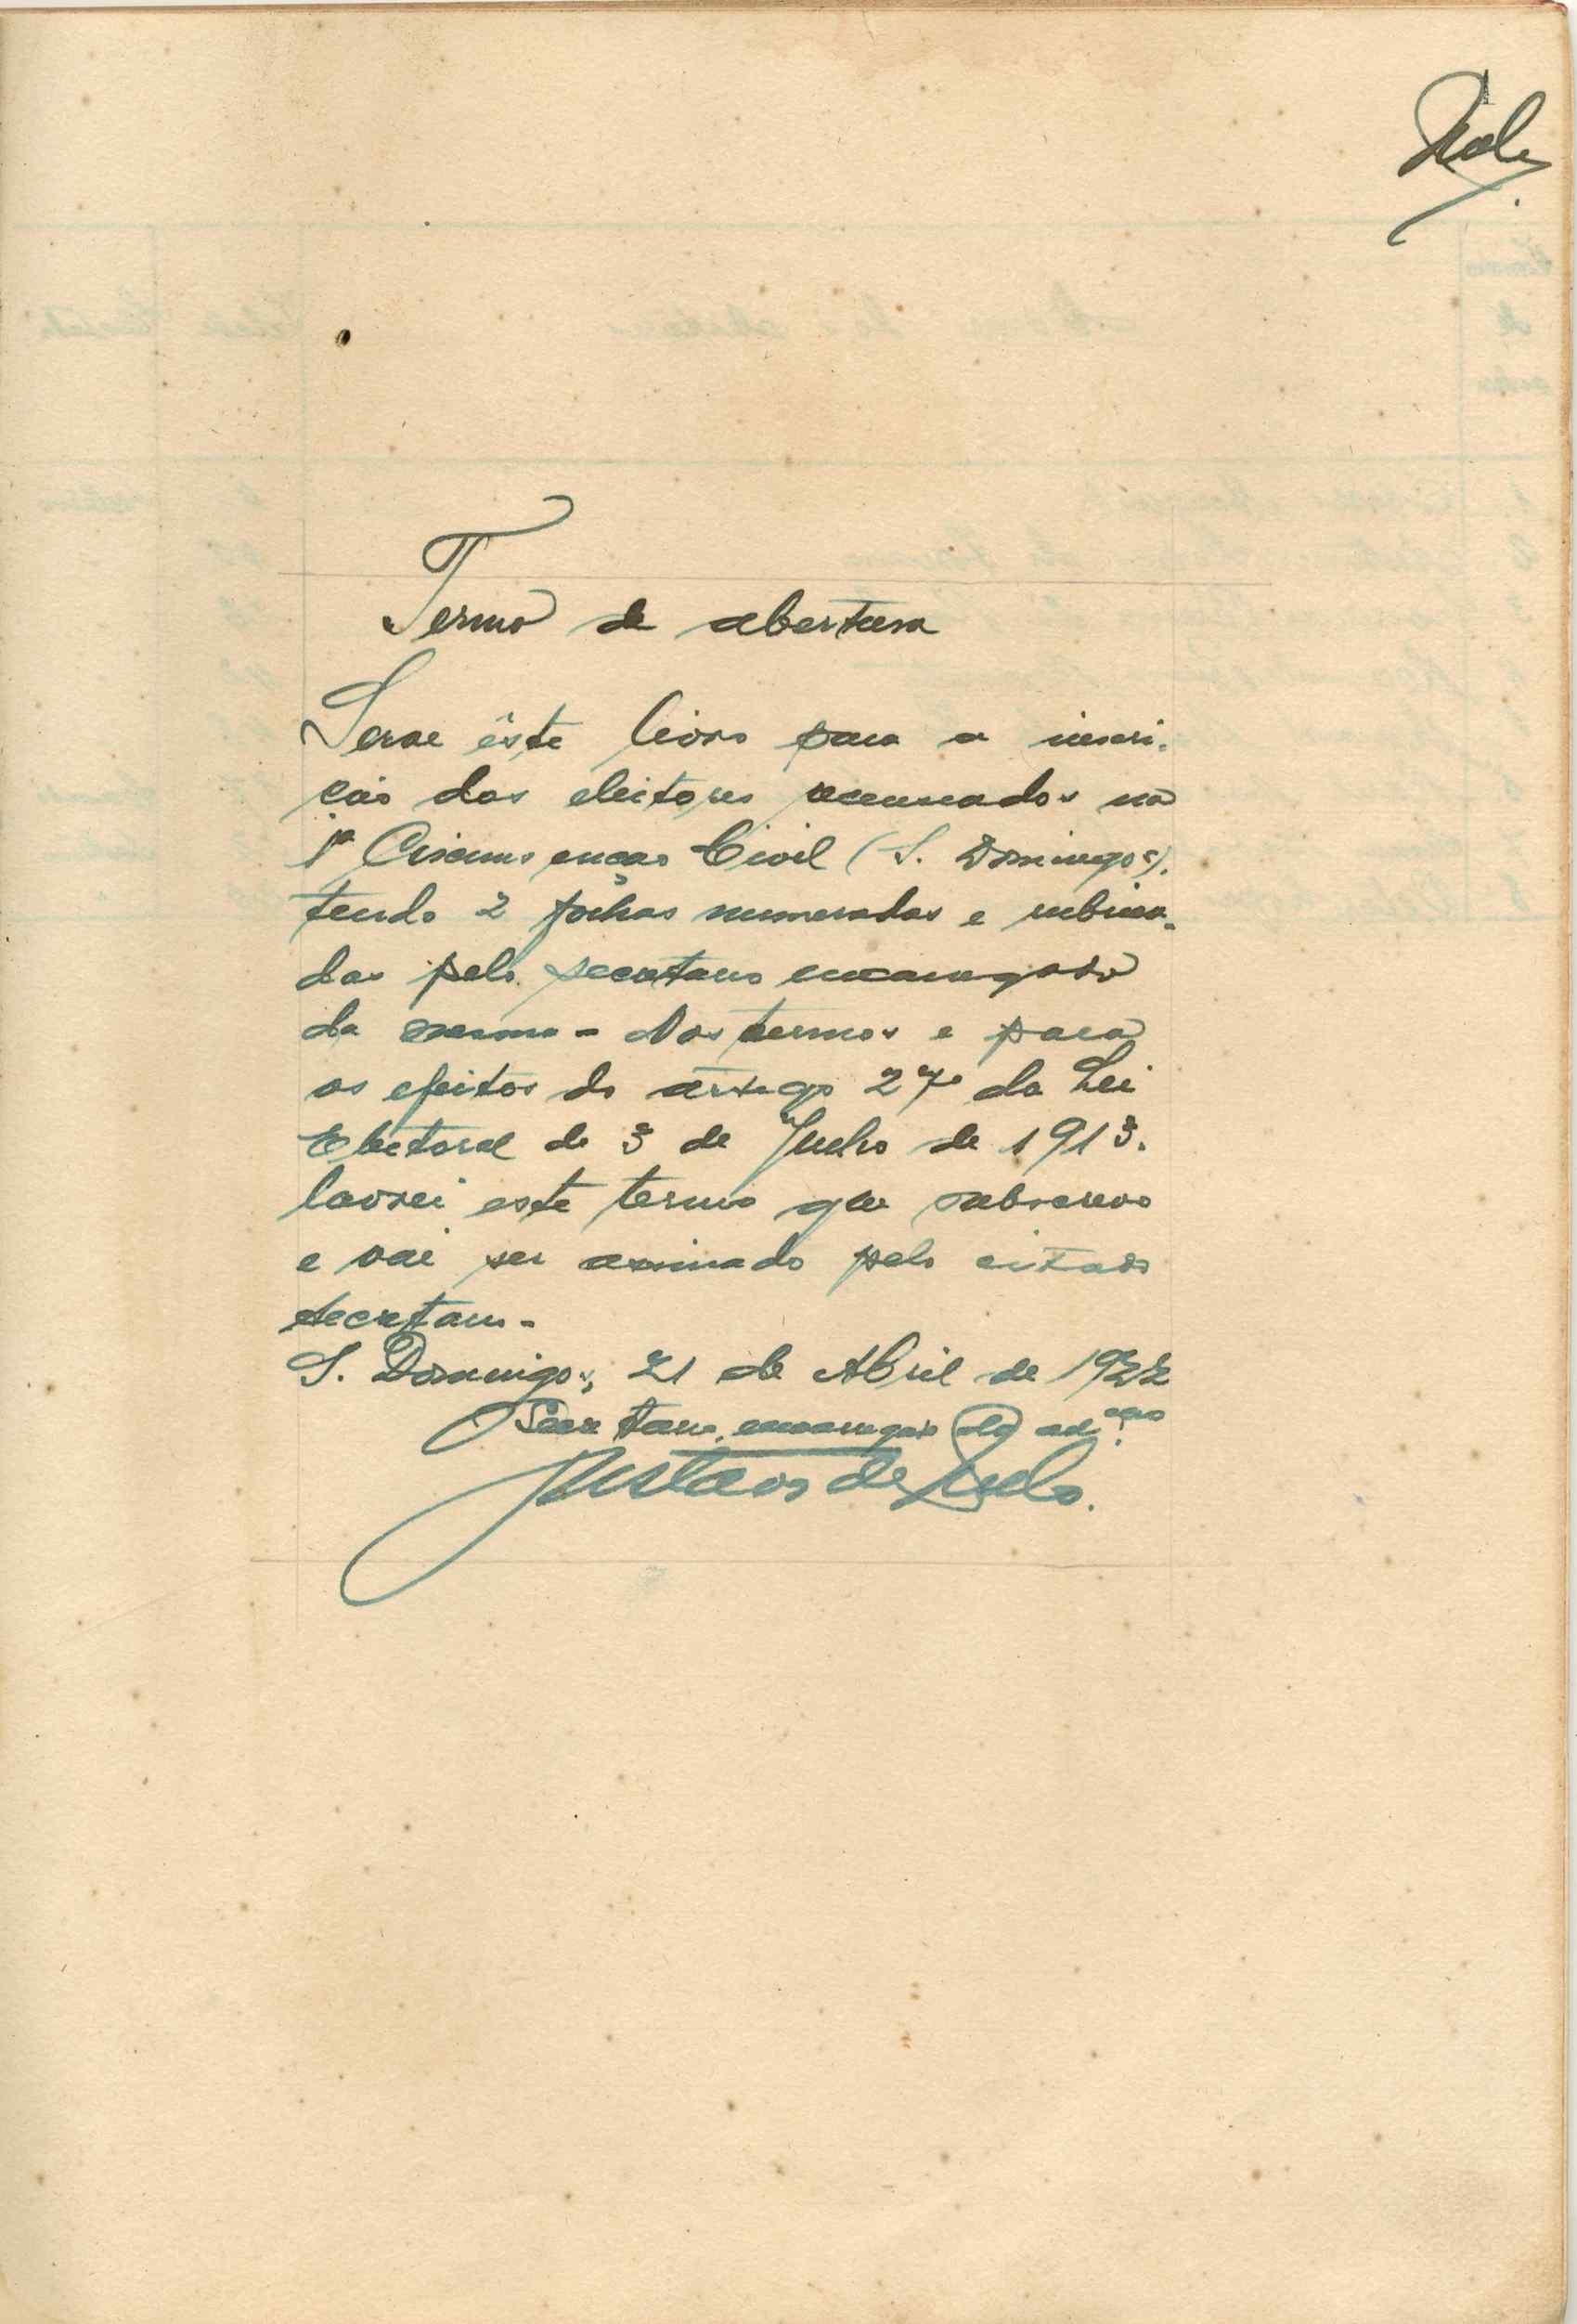 Termo de abertura
Serve êste livro para a inscri-
ção dos eleitores recenseados na
1ª Circunscrição Civil (S. Domingos).
tendo 2 folhas numeradas e rubrica-
das pelo secretario encarregado
da mesma - Nos termos e para
os efeitos do artigo 27º da Lei
Eleitoral de 3 de Julho de 1913.
lavrei este termo que subscrevo
e vai ser assinado pelo citado
secretario -
S. Domingos, 21 de Abril de 1922
O Secretario, encarregado da ad.ção